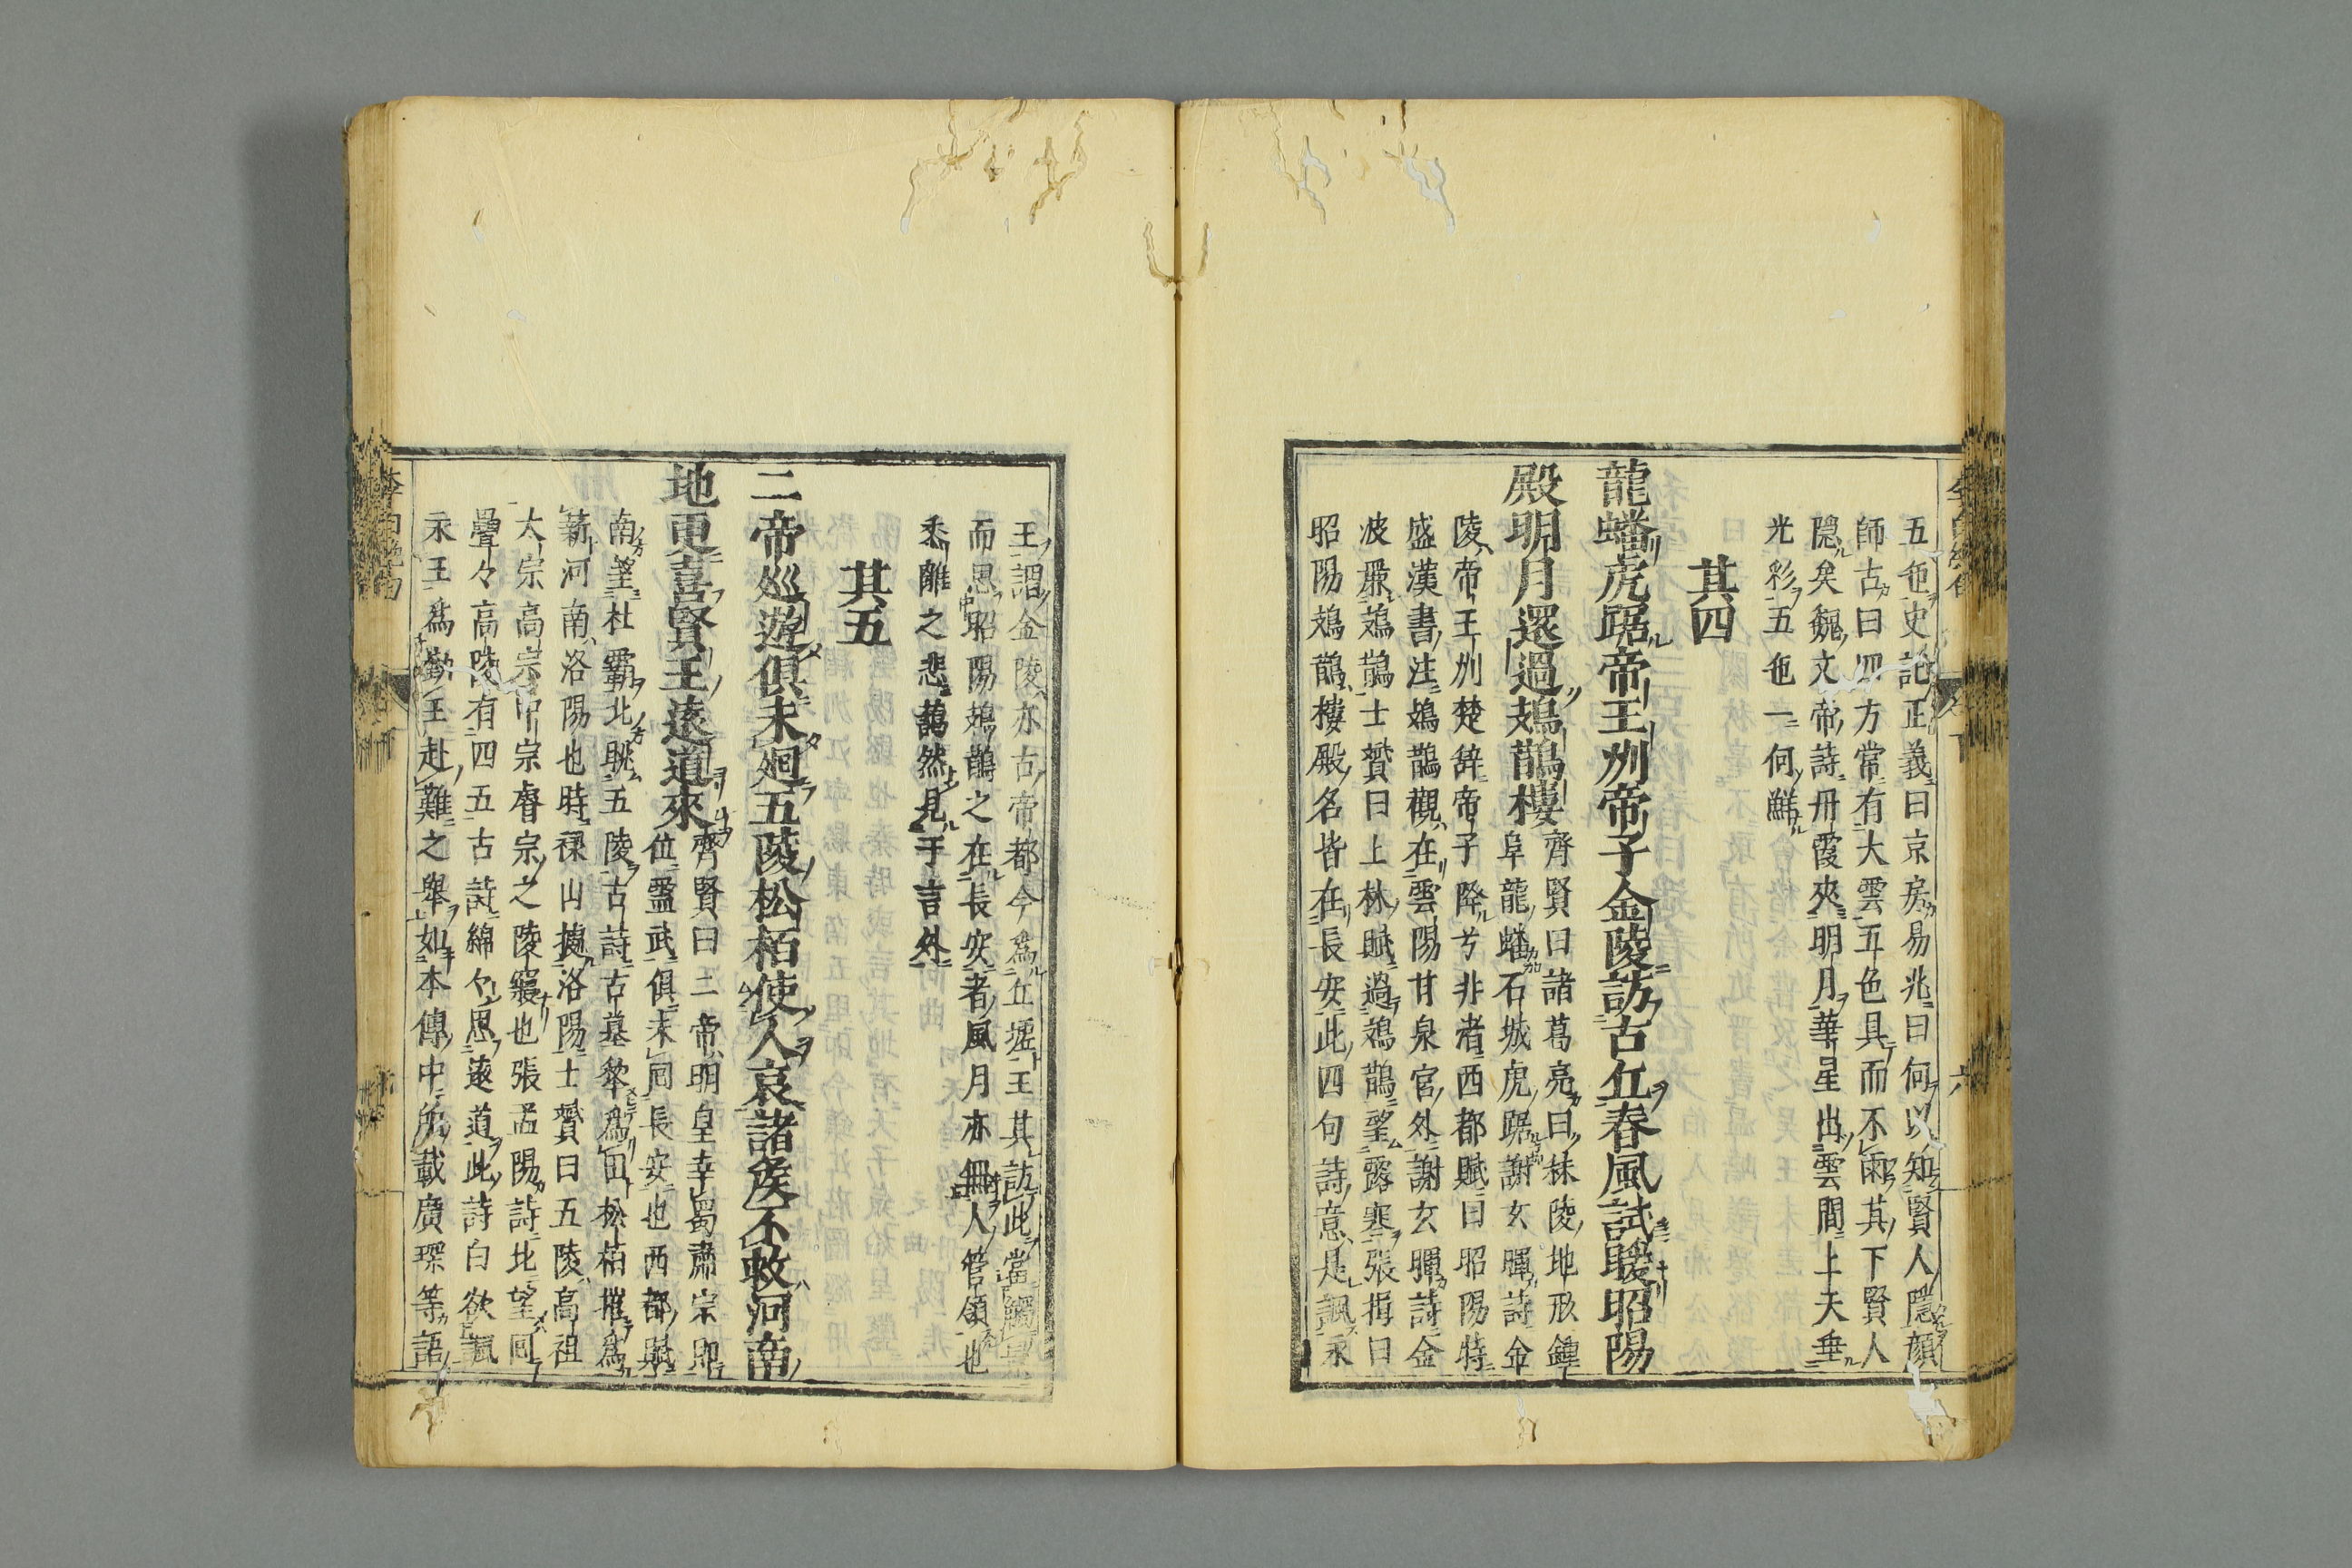 五色史記正義曰京房易兆曰何以知賢人隱顔
師古曰四方常有大雲五色具而不雨其下賢人
隠矣魏文帝詩丹霞夾明月華星出雲間上天垂
光彩五色一何鮮
其四
龍蟠虎踞帝王州帝子金陵訪古丘春風試暖昭陽
殿明月還過鳷鵲樓
齊賢曰諸葛亮曰秣陵地形鍾
阜龍蟠石城虎踞謝玄暉詩金
陵帝王州楚辞帝子降兮非渚西都賦曰昭陽特
盛漢書注鳷鵲觀在雲陽甘泉宮外謝玄暉詩金
波麗鳷鵲士贇曰上林賦過鳷鵲望露寒張揖曰
昭陽鳷鵲樓殿名皆在長安此四句詩意是諷永
王謂金陵亦古帝都今為丘墟王其訪此當觸景
而思昭陽鳷鵲之在長安者風月亦無人管領也
黍離之悲藹然見于言外
其五
二帝巡遊俱未廻五陵松栢使人哀諸侯不救河南
地更喜賢王遠道來
齊賢曰二帝明皇幸蜀肅宗即
位靈武俱未囘長安也西都賦
南望杜霸北眺五陵古詩古墓犂為田松栢摧為
薪河南洛陽也時禄山據洛陽士贇曰五陵高祖
太宗高宗中宗睿宗之陵寢也張孟陽詩北望何
壘々高陵有四五古詩綿々思遠道此詩白欲諷
永王為勤王赴難之舉如本傳中所載廣琛等語